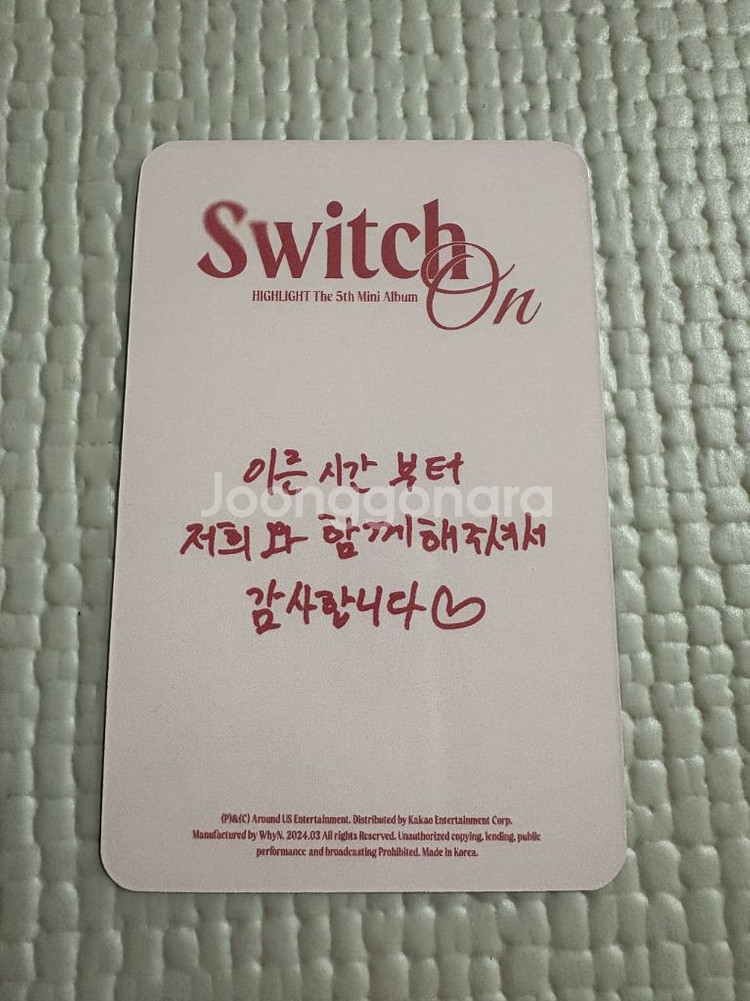 Switch
On
HIGHLIGHT The 5th Mini Album
이른 시간 부터
Joonggonara
저희와 함께해주셔서
감사합니다♡
(P)&(C) Around US Entertainment. Distributed by Kakao Entertainment Corp.
Manufactured by WhyN. 2024.03 All rights Reserved. Unauthorized copying, lending, public
performance and broadcasting Prohibited. Made in Korea.